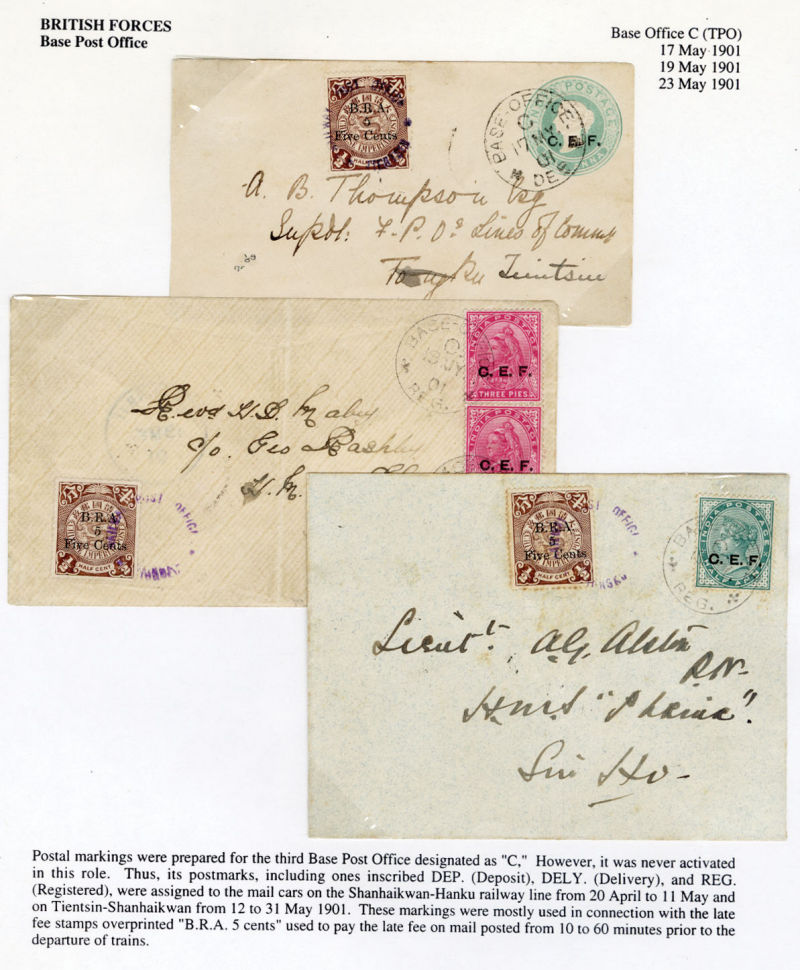 BRITISH FORCES
Base Post Office
Base Office C (TPO)
17 May 1901
19 May 1901
23 May 1901
B.R.A.
5
Five Cents
HALF CENT
BASE-OFFICE
C
17 MY
01
DE
POSTAGE
C. E. F.
A. B. Thompson Esq
Supdt: F. P. Os Lines of Commn
Tongku Tientsin
BASE-O
C
19 MY
01
REG.
INDIA POSTAGE
C. E. F.
THREE PIES
INDIA POSTAGE
C. E. F.
c/o Geo
H. M.
B.R.A.
5
Five Cents
HALF CENT
POST OFFICE
B.R.A.
5
Five Cents
HALF CENT
OFFICE
BA
REG.
INDIA POSTAGE
C. E. F.
HALF ANNA
Lieutt. A.G. Alston
R.N.
H.M.S "
Sin Ho-
Postal markings were prepared for the third Base Post Office designated as "C," However, it was never activated
in this role. Thus, its postmarks, including ones inscribed DEP. (Deposit), DELY. (Delivery), and REG.
(Registered), were assigned to the mail cars on the Shanhaikwan-Hanku railway line from 20 April to 11 May and
on Tientsin-Shanhaikwan from 12 to 31 May 1901. These markings were mostly used in connection with the late
fee stamps overprinted "B.R.A. 5 cents" used to pay the late fee on mail posted from 10 to 60 minutes prior to the
departure of trains.